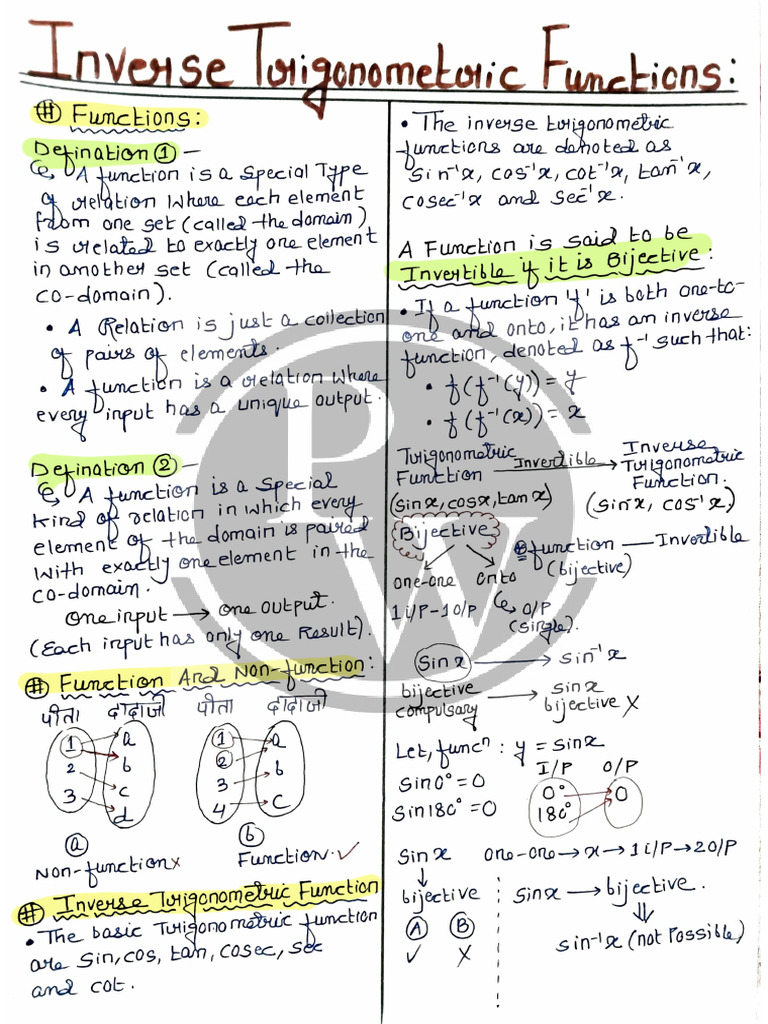 Inverse Trigonometric Functions:
# Functions:
Defination ① -
A function is a Special Type
of relation where each element
from one set (called the domain)
is related to exactly one element
in another set (called the
co-domain).
• A Relation is just a collection
of pairs of elements.
• A function is a relation where
every input has a unique output.
Defination ② -
A function is a Special
Kind of relation in which every
element of the domain is paired
with exactly one element in the
co-domain.
One input → one output.
(Each input has only one Result).
# Function And Non-function:
पीता दादाजी पीता दादाजी
1 a 1 a
2 b 2 b
3 c 3 c
d 4
ⓐ ⓑ
Non-function × Function. ✓
# Inverse Trigonometric Function
• The basic Trigonometric function
are Sin, cos, tan, cosec, sec
and cot.
• The inverse trigonometric
functions are denoted as
Sin⁻¹x, cos⁻¹x, cot⁻¹x, tan⁻¹x,
cosec⁻¹x and sec⁻¹x.
A Function is said to be
Invertible if it is Bijective:
• If a function 'f' is both one-to-
one and onto, it has an inverse
function, denoted as f⁻¹ such that:
• f(f⁻¹(y)) = y
• f(f⁻¹(x)) = x
Trigonometric Function Invertible → Inverse Trigonometric Function.
(Sin x, cos x, tan x) (Sin⁻¹x, cos⁻¹x)
Bijective
function — Invertible
(bijective)
one-one onto
1 i/P - 1 O/P O/P
(Single).
Sin x → Sin⁻¹ x
bijective compulsary → sin x bijective ×
Let, funcⁿ : y = sin x
I/P O/P
Sin 0° = 0 0° 0
Sin 180° = 0 180°
Sin x one-one → x → 1 i/P → 2 O/P
↓
bijective
Ⓐ Ⓑ
✓ ×
Sin x → bijective.
⇓
sin⁻¹x (not Possible)
PW